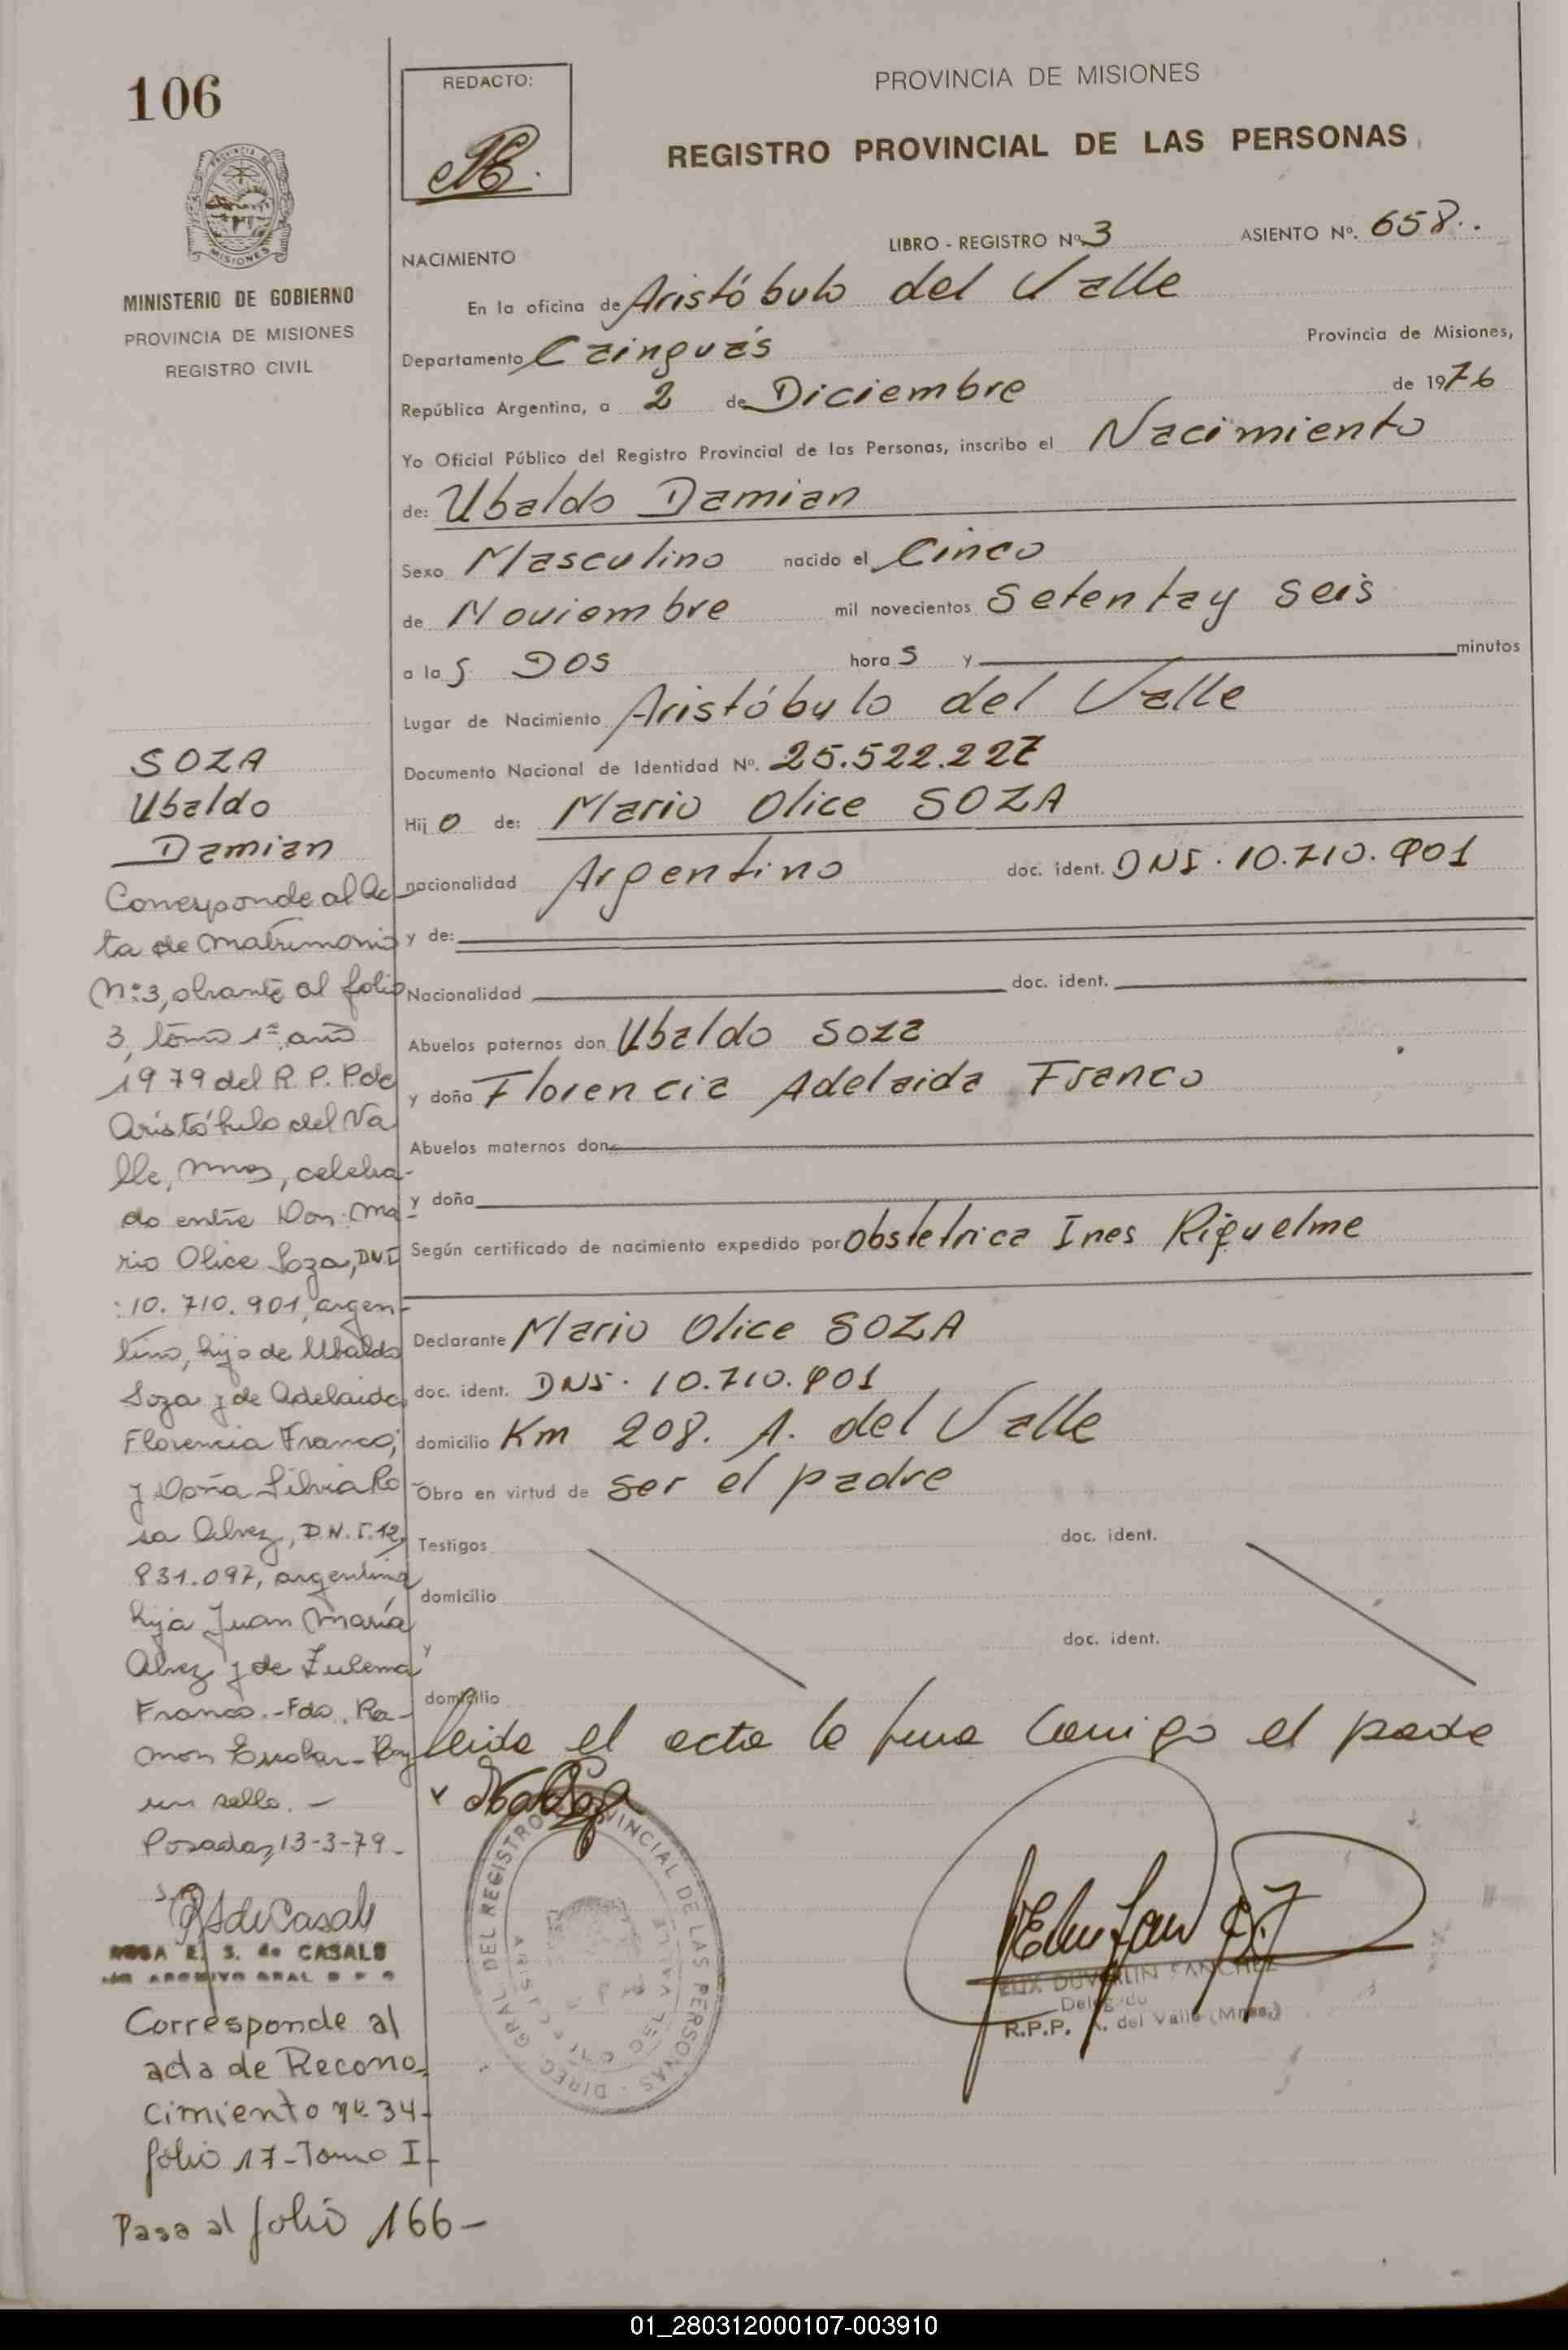 106
PROVINCIA DE MISIONES
MINISTERIO DE GOBIERNO
PROVINCIA DE MISIONES
REGISTRO CIVIL
REDACTO:
PROVINCIA DE MISIONES
REGISTRO PROVINCIAL DE LAS PERSONAS
LIBRO - REGISTRO Nº 3 ASIENTO Nº. 658..
NACIMIENTO
En la oficina de Aristóbulo del Valle
Departamento Cainguás Provincia de Misiones,
República Argentina, a 2 de Diciembre de 1976
Yo Oficial Público del Registro Provincial de las Personas, inscribo el Nacimiento
de: Ubaldo Damian
Sexo Masculino nacido el Cinco
de Noviembre mil novecientos Setenta y seis
a las Dos horas y minutos
Lugar de Nacimiento Aristóbulo del Valle
Documento Nacional de Identidad Nº. 25.522.227
Hijo de: Mario Olice SOZA
nacionalidad Argentino doc. ident. DNI. 10.710.901
y de:
Nacionalidad doc. ident.
Abuelos paternos don Ubaldo Soza
y doña Florencia Adelaida Franco
Abuelos maternos don
y doña
Según certificado de nacimiento expedido por Obstetrica Ines Riquelme
Declarante Mario Olice SOZA
doc. ident. DNI. 10.710.901
domicilio Km 208. A. del Valle
Obra en virtud de ser el padre
Testigos doc. ident.
domicilio
y doc. ident.
domicilio
leida el acta la firma conmigo el padre
DIREC. GRAL. DEL REGISTRO PROVINCIAL DE LAS PERSONAS
DUVERLIN SANCHEZ
Delegado
R.P.P. A. del Valle (Mnes.)
SOZA
Ubaldo
Damian
Corresponde al Ac
ta de matrimonio
Nº: 3, obrante al folio
3, tomo 1º, año
1979 del R. P. P de
Aristóbulo del Va
lle, Mnes, celebra-
do entre Don Ma-
rio Olice Soza, DNI
:10. 710. 901, argen-
tino, hijo de Ubaldo
Soza y de Adelaida
Florencia Franco;
y Doña Silvia Ro
sa Alvez, D.N.I. 12.
831.097, argentina
hija Juan María
Alvez y de Zulema
Franco.-Fdo. Ra-
mon Escobar - Hay
un sello. -
Posadas, 13-3-79.
ROSA E. S. de CASALS
Corresponde al
acta de Recono-
cimiento nº 34-
folio 17-Tomo I-
Pasa al folio 166-
01_280312000107-003910